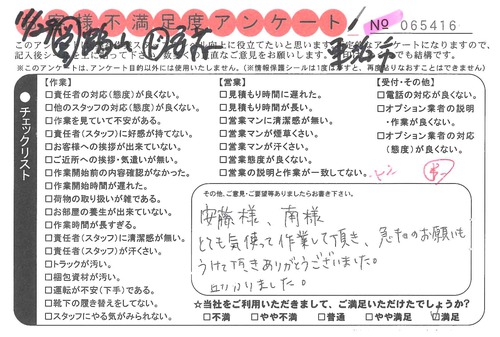 お客様不満足度アンケート
№ 065416
※このアンケートは、アンケート目的以外には使用いたしません。(※情報保護シールは1度は剥すと、再度貼りなおすことはできません)
チェックリスト
【作業】
□責任者の対応(態度)が良くない。
□他のスタッフの対応(態度)が良くない。
□作業を見ていて不安がある。
□責任者(スタッフ)に好感が持てない。
□お客様への挨拶が出来ていない。
□ご近所への挨拶・気遣いが無い。
□作業開始前の内容確認がなかった。
□作業開始時間が遅れた。
□荷物の取り扱いが雑である。
□お部屋の養生が出来ていない。
□作業時間が長すぎる。
□責任者(スタッフ)に清潔感が無い。
□責任者(スタッフ)が汗くさい。
□トラックが汚い。
□梱包資材が汚い。
□運転が不安(下手)である。
□靴下の履き替えをしてない。
□スタッフにやる気がみられない。
【営業】
□見積もり時間に遅れた。
□見積もり時間が長い。
□営業マンに清潔感が無い。
□営業マンが煙草くさい。
□営業マンが汗くさい。
□営業態度が良くない。
□営業の説明と作業が一致してない。
【受付・その他】
□電話の対応が良くない。
□オプション業者の説明
・作業が良くない。
□オプション業者の対応
(態度)が良くない。
その他、ご意見・ご要望等ありましたらお書き下さい。
安藤様、南様
とても気使って作業して頂き、急なのお願いも
うけて頂きありがとうございました。
助かりました。
☆当社をご利用いただきまして、ご満足いただけたでしょうか?
□不満 □やや不満 □普通 □やや満足 ☑満足